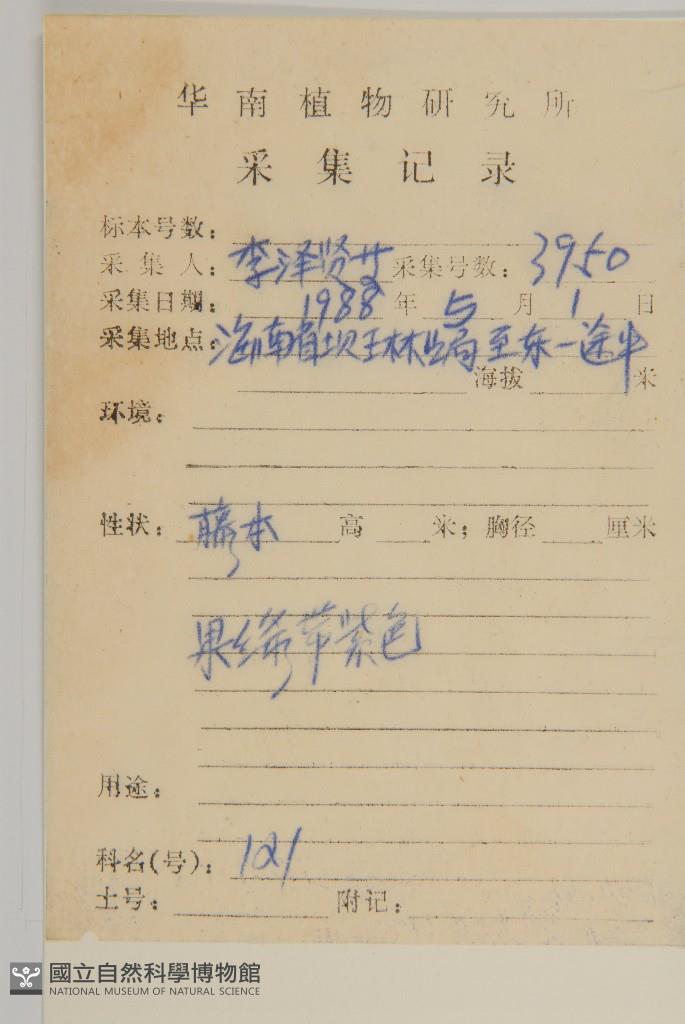 华南植物研究所
采集记录
标本号数：
采集人：李泽贤等 采集号数：3950
采集日期：1988年5月1日
采集地点：海南省坝王林业局至东一途中
海拔 米
环境：
性状：藤本 高 米；胸径 厘米
果绿带紫色
用途：
科名(号)：121
土号： 附记：
國立自然科學博物館
NATIONAL MUSEUM OF NATURAL SCIENCE